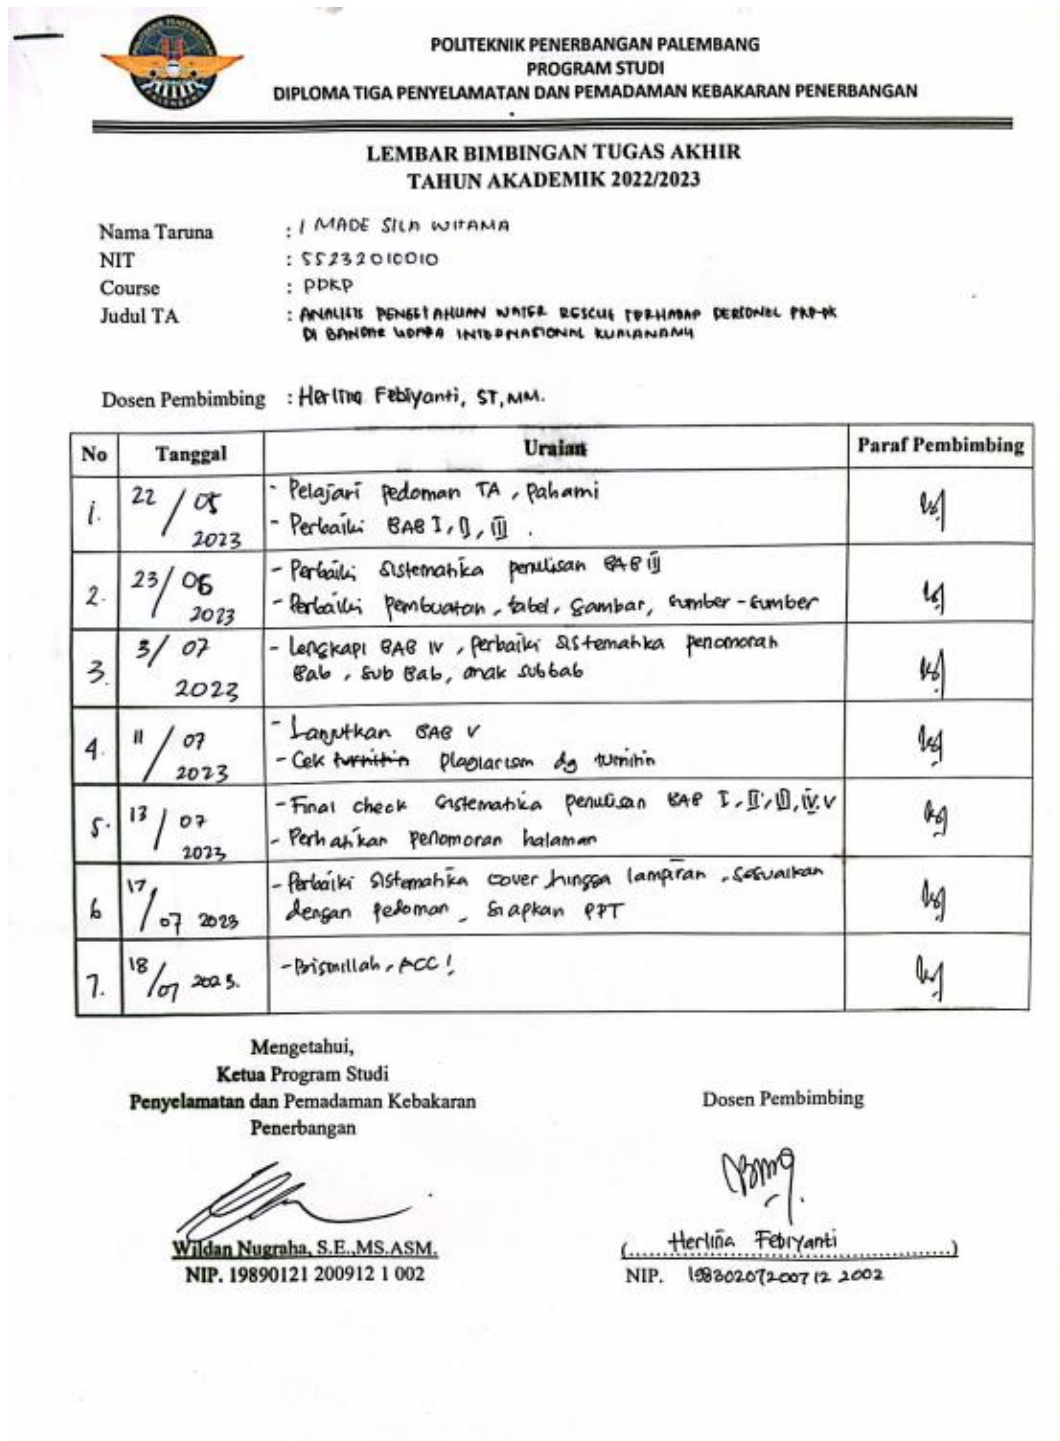 POLITEKNIK PENERBANGAN PALEMBANG
PROGRAM STUDI
DIPLOMA TIGA PENYELAMATAN DAN PEMADAMAN KEBAKARAN PENERBANGAN
LEMBAR BIMBINGAN TUGAS AKHIR
TAHUN AKADEMIK 2022/2023
Nama Taruna : I MADE SILA WITAMA
NIT : 55232010010
Course : PPKP
Judul TA : ANALISIS PENGETAHUAN WATER RESCUE TERHADAP PERSONEL PKP-PK
DI BANDAR UDARA INTERNASIONAL KUALANAMU
Dosen Pembimbing : Herlina Febiyanti, ST, MM.
No Tanggal Uraian Paraf Pembimbing
1. 22/05 2023 - Pelajari pedoman TA, Pahami
- Perbaiki BAB I, II, III.
2. 23/06 2023 - Perbaiki sistematika penulisan BAB III
- Perbaiki Pembuatan, tabel, Gambar, sumber-sumber
3. 3/07 2023 - Lengkapi BAB IV, perbaiki sistematika penomoran
Bab, Sub Bab, anak subbab
4. 11/07 2023 - Lanjutkan BAB V
- Cek turnitin Plagiarism dg turnitin
5. 13/07 2023 - Final check sistematika penulisan BAB I, II, III, IV, V
- Perhatikan penomoran halaman
6 17/07 2023 - Perbaiki sistematika cover hingga lampiran, sesuaikan
dengan pedoman, siapkan PPT
7. 18/07 2023. - Bismillah, ACC!
Mengetahui,
Ketua Program Studi
Penyelamatan dan Pemadaman Kebakaran
Penerbangan
Dosen Pembimbing
Wildan Nugraha, S.E.,MS.ASM.
NIP. 19890121 200912 1 002
(Herlina Febiyanti)
NIP. 198302072007122002